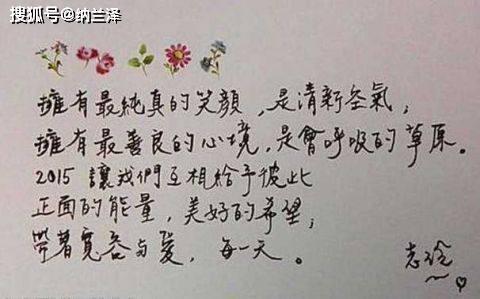 搜狐号@纳兰泽
擁有最純真的笑顏，是清新空氣；
擁有最善良的心境，是會呼吸的草原。
2015 讓我們互相給予彼此
正面的能量，美好的希望；
帶著寬容与愛，每一天。
志玲